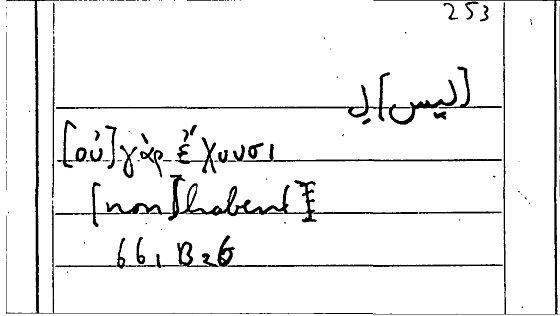 253
[ليس] ل
[οὐ] γὰρ ἔχουσι
[non] habent]
66, B 26